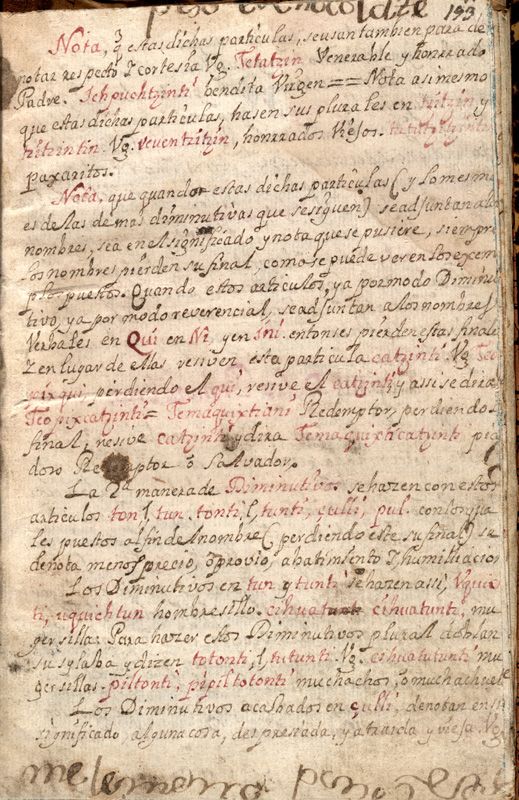 peso el chocolate 193
Nota, q̃ estas dichas particulas, se usan tambien para de
notar respecto Y cortesia Vg. Tetatzin Venerable y honrrado
Padre. Ichpuchtzinti bendita Virgen == Nota asimesmo
que estas dichas particulas, hasen sus plurales en tzitzin y
tzitzintin. Vg. Veventzitzin, honrrados Viejos.
paxaritos.
Nota, que quando estas dichas particulas (y lo mesmo
es de las demas diminutivas que se siguen) se adjuntan a los
nombres, sea en el significado y nota que se pusiere, siempre
los nombres pierden su final, como se puede ver en los exem
plos puestos. Quando estos articulos, ya por modo Diminu
tivo, ya por modo reverencial, se adjuntan a los nombres
Verbales en Qui en Ni, y en Ini. entonses pierden estas final
Y en lugar de ellas resiven esta particula catzinti. Vg Teo
pixqui, perdiendo el qui, resive el catzinti, y assi se dira
Teopixcatzinti = Temaquixtiani Redemptor, perdiendo
final, resive catzinti y dira Temaquixticatzinti pia
doso Redemptor ô Salvador.
La 2a. manera de Diminutivos se hazen con estos
articulos ton l, tun. tonti l, tunti, çulli, pul. con los qua
les puestos al fin del nombre (perdiendo este su final) se
denota menosprecio, oprovio, abatimiento Y humiliacion
Los Diminutivos en tun y tunti se hazen assi, Vquich
ti, uquichtun hombresillo. cihuatunti, mu
gersilla: Para hazer estos Diminutivos plural doblan
su sylaba y dizen totonti l, tutunti. Vg. cihuatutunti mu
gersillas. piltonti, pipiltotonti muchachos, o muchachuel
Los Diminutivos acabados en çulli, denotan en su
significado, alguna cosa, despresiada, y atraida y vieja. Vg.